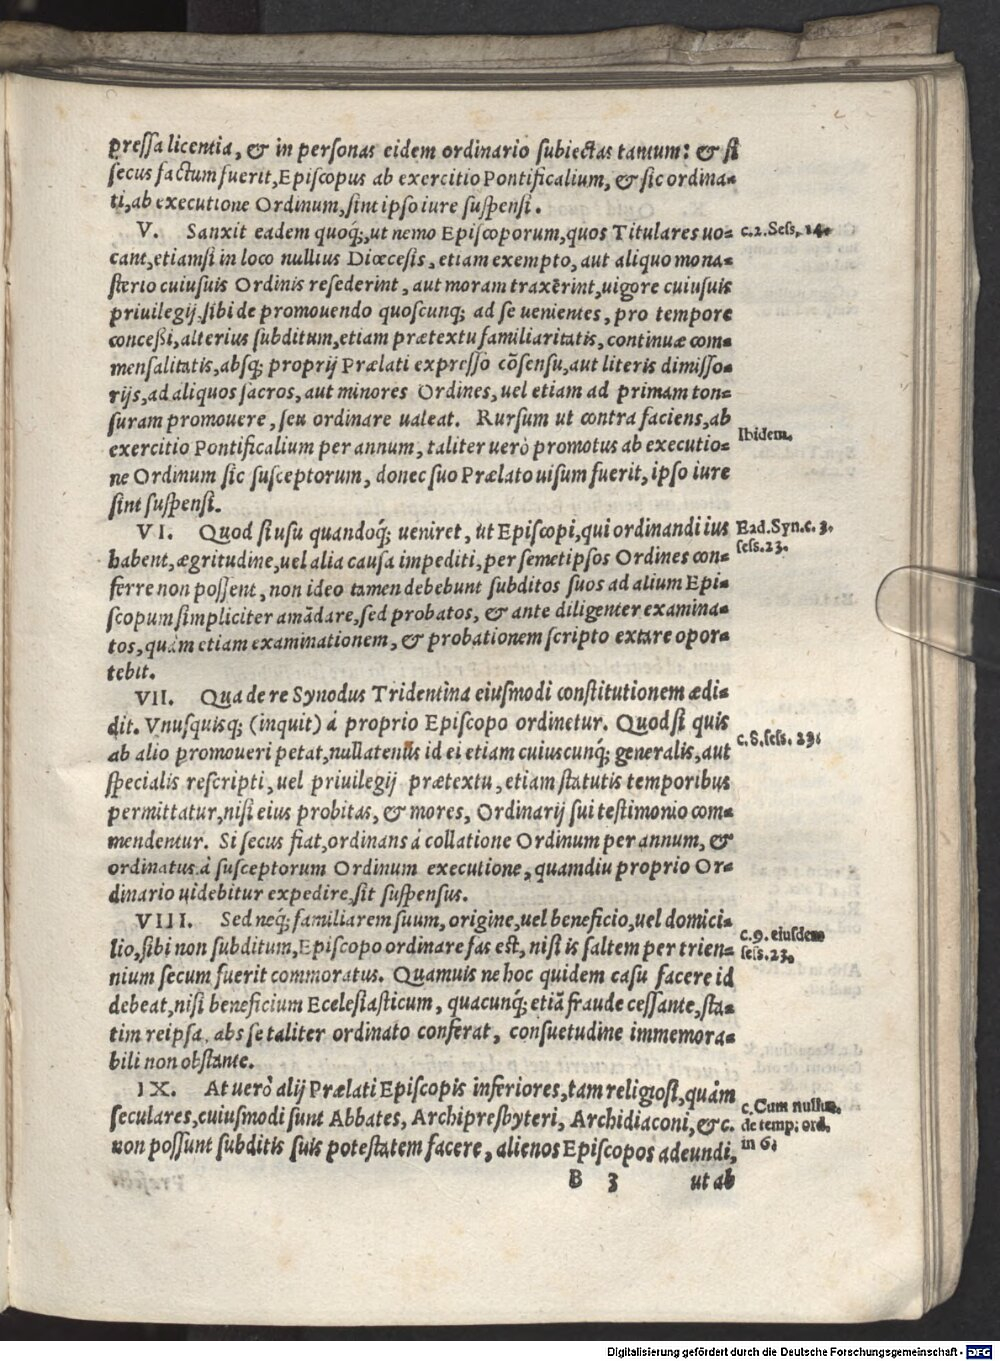 pressa licentia, & in personas eidem ordinario subiectas tantum: & si
secus factum fuerit, Episcopus ab exercitio Pontificalium, & sic ordina-
ti, ab executione Ordinum, sint ipso iure suspensi.
V. Sanxit eadem quoq;, ut nemo Episcoporum, quos Titulares uo-
c.2. Sess. 14.
cant, etiamsi in loco nullius Diœcesis, etiam exempto, aut aliquo mona-
sterio cuiusuis Ordinis resederint, aut moram traxẽrint, uigore cuiusuis
priuilegij sibi de promouendo quoscunq; ad se uenientes, pro tempore
concessi, alterius subditum, etiam prætextu familiaritatis, continuæ com-
mensalitatis, absq; proprij Prælati expresso cõsensu, aut literis dimisso-
rijs, ad aliquos sacros, aut minores Ordines, uel etiam ad primam ton-
suram promouere, seu ordinare ualeat. Rursum ut contra faciens, ab
exercitio Pontificalium per annum, taliter uerò promotus ab executio-
Ibidem.
ne Ordinum sic susceptorum, donec suo Prælato uisum fuerit, ipso iure
sint suspensi.
VI. Quod si usu quandoq́; ueniret, ut Episcopi, qui ordinandi ius
Ead. Syn. c. 3.
sess. 23.
habent, ægritudine, uel alia causa impediti, per semetipsos Ordines con-
ferre non possent, non ideo tamen debebunt subditos suos ad alium Epi-
scopum simpliciter amãdare, sed probatos, & ante diligenter examina-
tos, quàm etiam examinationem, & probationem scripto extare opor-
tebit.
VII. Qua de re Synodus Tridentina eiusmodi constitutionem ædi-
dit. Vnusquisq; (inquit) á proprio Episcopo ordinetur. Quod si quis
ab alio promoueri petat, nullatenus id ei etiam cuiuscunq́; generalis, aut
c. 8. sess. 23.
specialis rescripti, uel priuilegij prætextu, etiam statutis temporibus
permittatur, nisi eius probitas, & mores, Ordinarij sui testimonio com-
mendentur. Si secus fiat, ordinans á collatione Ordinum per annum, &
ordinatus à susceptorum Ordinum executione, quamdiu proprio Or-
dinario uidebitur expedire, sit suspensus.
VIII. Sed neq́; familiarem suum, origine, uel beneficio, uel domici-
c. 9. eiusdem
sess. 23.
lio, sibi non subditum, Episcopo ordinare fas est, nisi is saltem per trien-
nium secum fuerit commoratus. Quamuis ne hoc quidem casu facere id
debeat, nisi beneficium Ecclesiasticum, quacunq́; etiã fraude cessante, sta-
tim reipsa, abs se taliter ordinato conferat, consuetudine immemora-
bili non obstante.
IX. At uerò alij Prælati Episcopis inferiores, tam religiosi, quàm
c. Cum nullus,
de temp. ord.
in 6.
seculares, cuiusmodi sunt Abbates, Archipresbyteri, Archidiaconi, &c.
non possunt subditis suis potestatem facere, alienos Episcopos adeundi,
B 3 ut ab
Digitalisierung gefördert durch die Deutsche Forschungsgemeinschaft - DFG